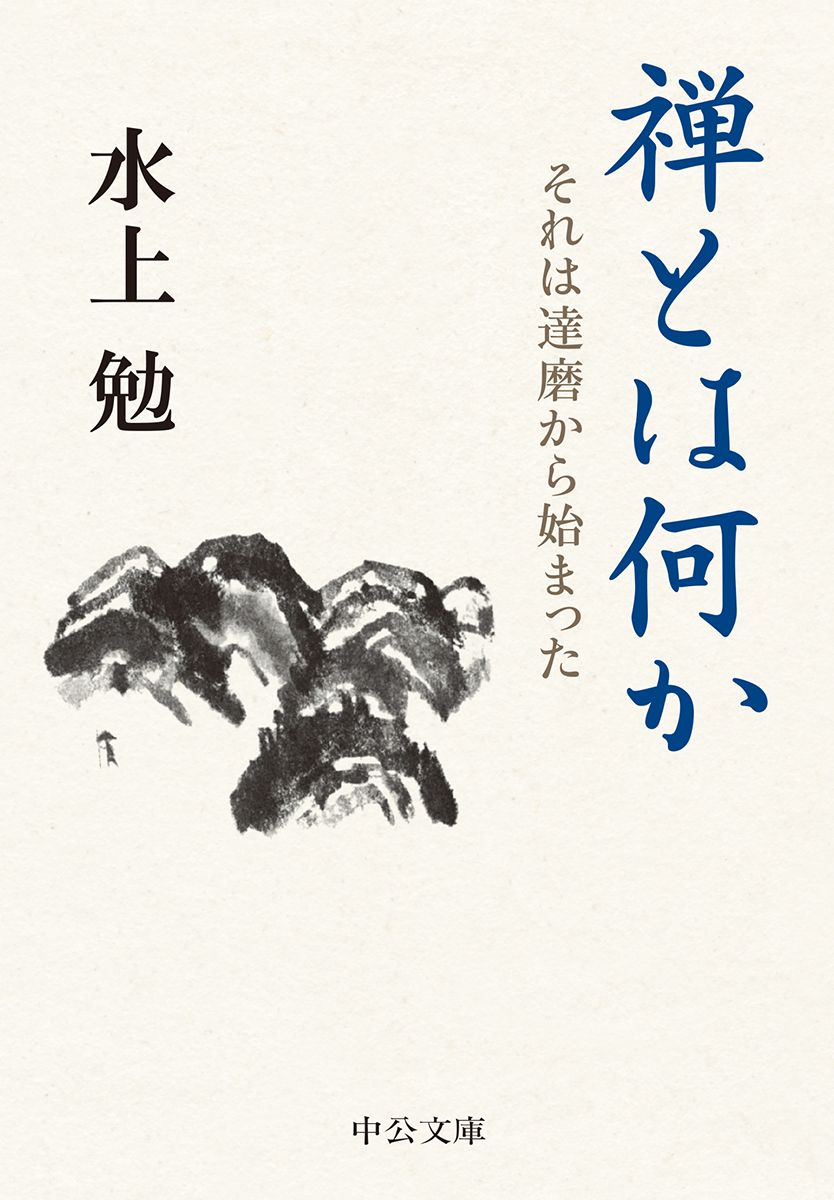 禅とは何か
それは達磨から始まった
水上勉
中公文庫